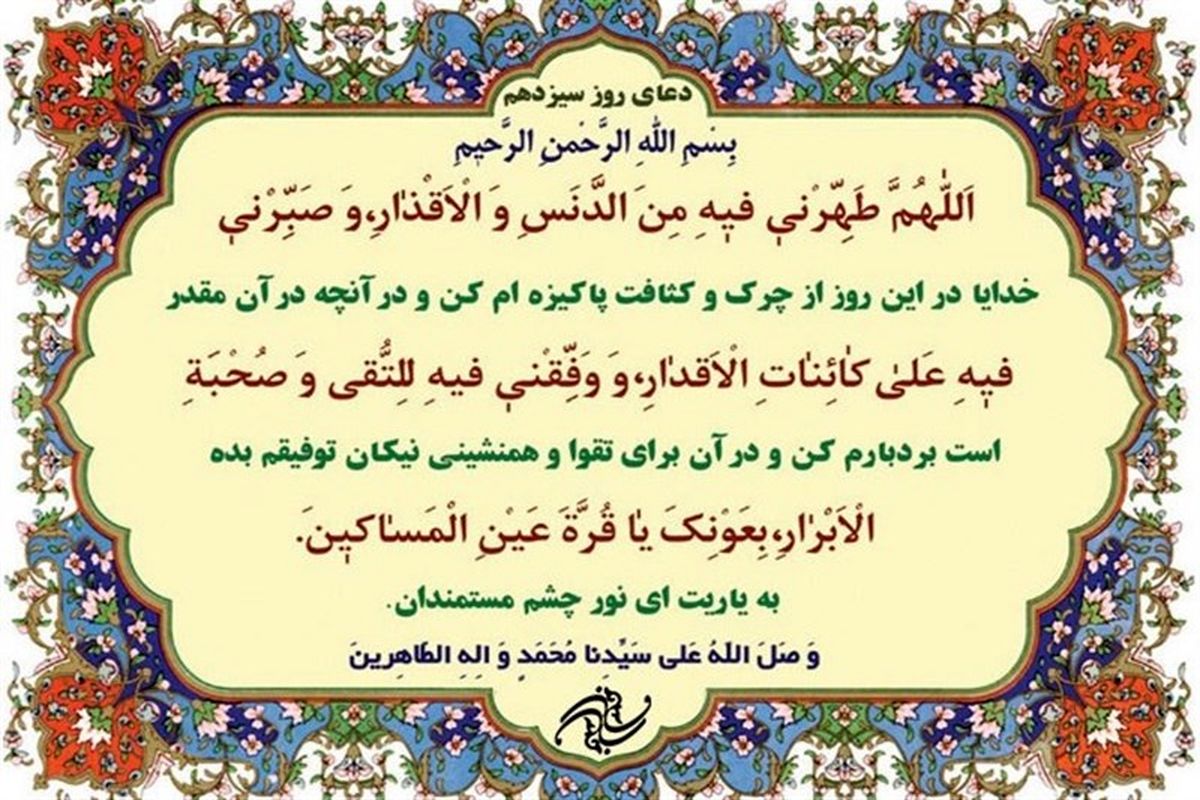 دعای روز سیزدهم
بِسْمِ اللهِ الرَّحْمنِ الرَّحیمِ
اَللّٰهُمَّ طَهِّرْنی فیهِ مِنَ الدَّنَسِ وَ الْاَقْذٰارِ،وَ صَبِّرْنی
خدایا در این روز از چرک و کثافت پاکیزه ام کن و در آنچه در آن مقدر
فیهِ عَلیٰ کٰائِنٰاتِ الْاَقدٰارِ،وَ وَفِّقْنی فیهِ لِلتُّقی وَ صُحْبَةِ
است بردبارم کن و در آن برای تقوا و همنشینی نیکان توفیقم بده
الْاَبْرٰارِ،بِعَوْنِکَ یٰا قُرَّةَ عَیْنِ الْمَسٰاکینَ.
به یاریت ای نور چشم مستمندان.
وَ صَلَ اللّهُ عَلی سَیِّدِنا مُحَمَدٍ وَ الِهِ الطّاهِرینَ